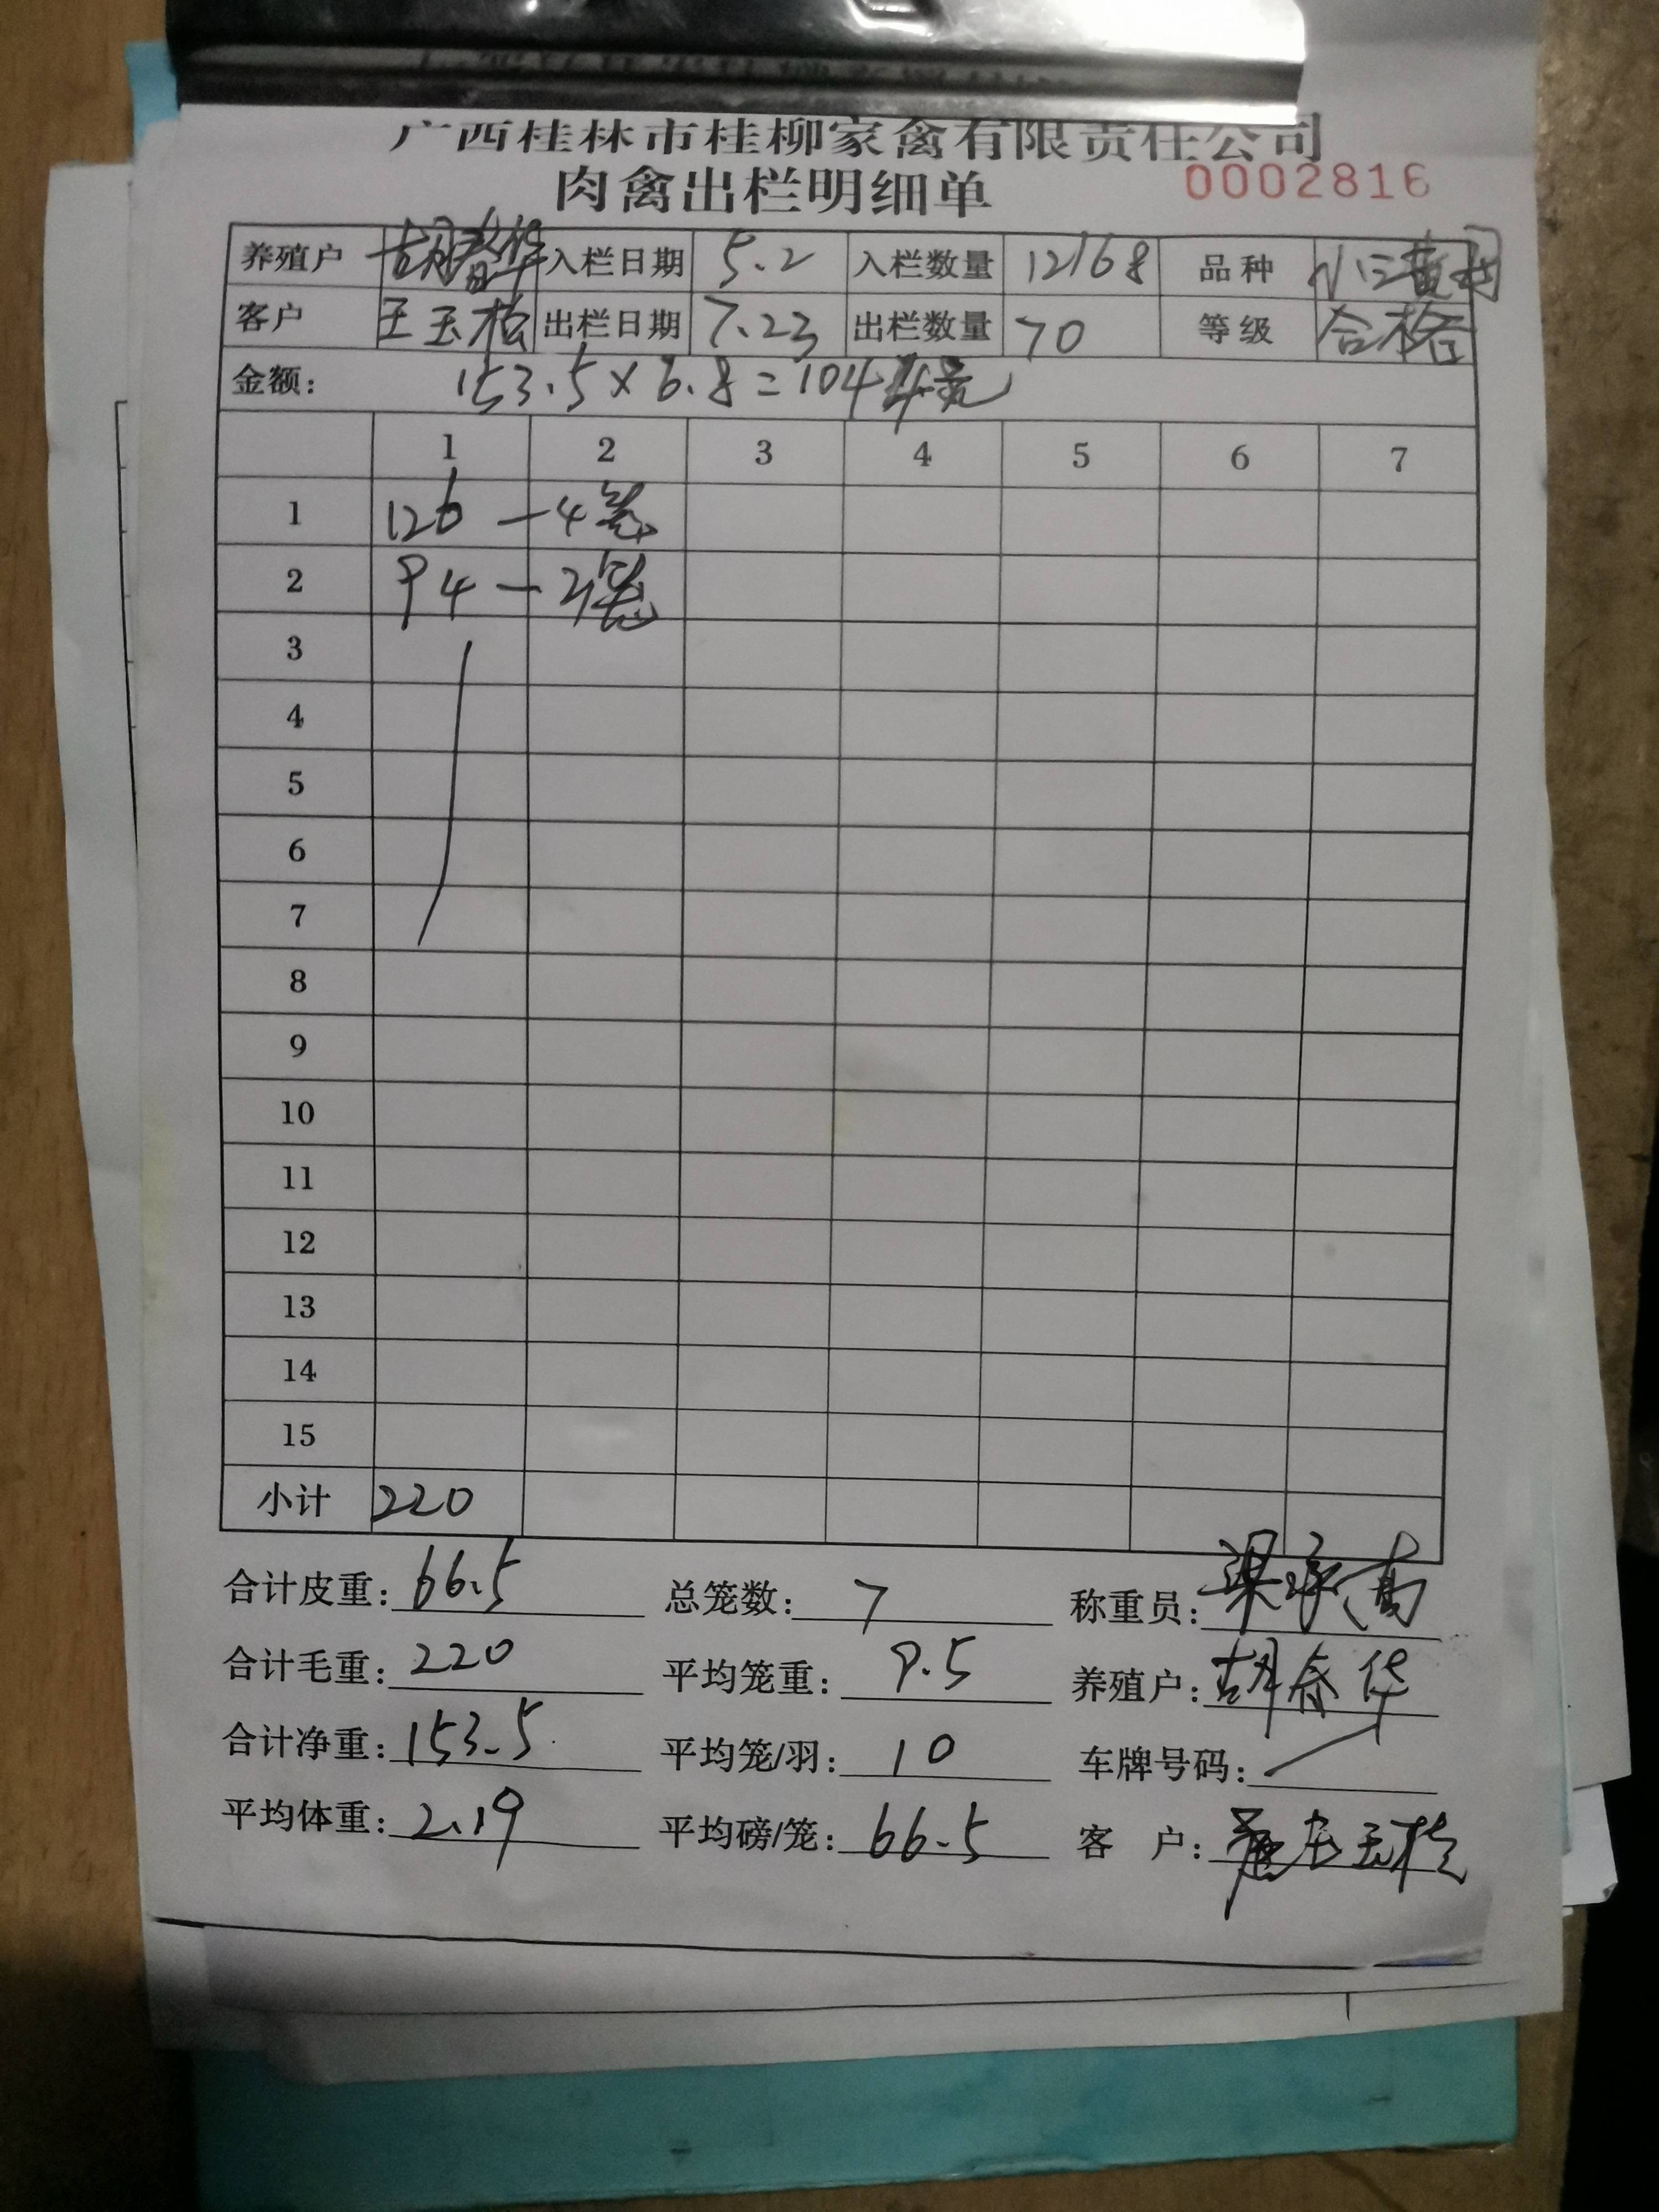 广西桂林市桂柳家禽有限责任公司
肉禽出栏明细单 0002816
养殖户 胡春华 入栏日期 5.2 入栏数量 12168 品种 小三黄
客户 王玉松 出栏日期 7.23 出栏数量 70 等级 合格
金额: 153.5×6.8=1044元
1 2 3 4 5 6 7
1 126 — 4笼
2 94 — 3笼
3
4
5
6
7
8
9
10
11
12
13
14
15
小计 220
合计皮重: 66.5 总笼数: 7 称重员: 梁
合计毛重: 220 平均笼重: 9.5 养殖户: 胡春华
合计净重: 153.5 平均笼/羽: 10 车牌号码:
平均体重: 2.19 平均磅/笼: 66.5 客 户: 王玉松